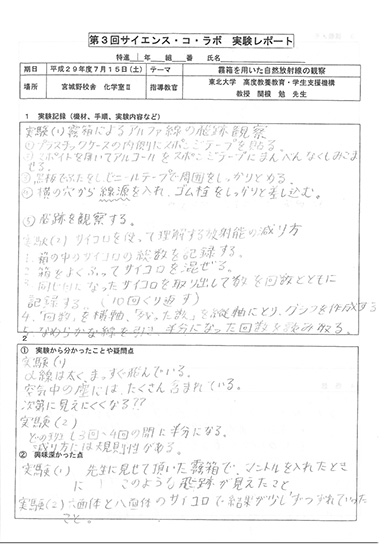 第3回サイエンス・コ・ラボ 実験レポート
特進 年 組 番 氏名
期日 平成29年度7月15日(土) テーマ 霧箱を用いた自然放射線の観察
場所 宮城野校舎 化学室Ⅱ 指導教官 東北大学 高度教養教育・学生支援機構
教授 関根 勉 先生
1 実験記録(機材、手順、実験内容など)
実験(1)霧箱によるアルファ線の飛跡観察
①プラスチックケースの内側にスポンジテープを貼る。
②スポイトを用いてアルコールをスポンジテープにまんべんなくしみこませる。
ふたをしビニールテープで周囲をしっかりとめる。
④横の穴から線源を入れ、ゴム栓をしっかりと差し込む。
⑤飛跡を観察する。
実験(2)サイコロを使って理解する放射能の減り方
1. 箱の中のサイコロの総数を記録する。
2. 箱をよくふってサイコロを混ぜる。
になったサイコロを取り出して数を回数とともに
記録する。(10回くり返す)
4.「回数」を横軸、「残った数」を縦軸にとり、グラフを作成する
5. なめらかな線を引き、半分になった回数を読み取る。
2
① 実験から分かったことや疑問点
実験(1)
α線は太く、まっすぐ飛んでいる。
空気中の塵には、たくさん含まれている。
次第に見えにくくなる??
実験(2)
3回〜4回の間に半分になる。
減り方には規則性がある。
② 興味深かった点
実験(1) 先生に見せて頂いた霧箱で、マントルを入れたとき
に このような飛跡が見えたこと
実験(2)六面体と八面体のサイコロで結果が少しずつずれていった
こと。